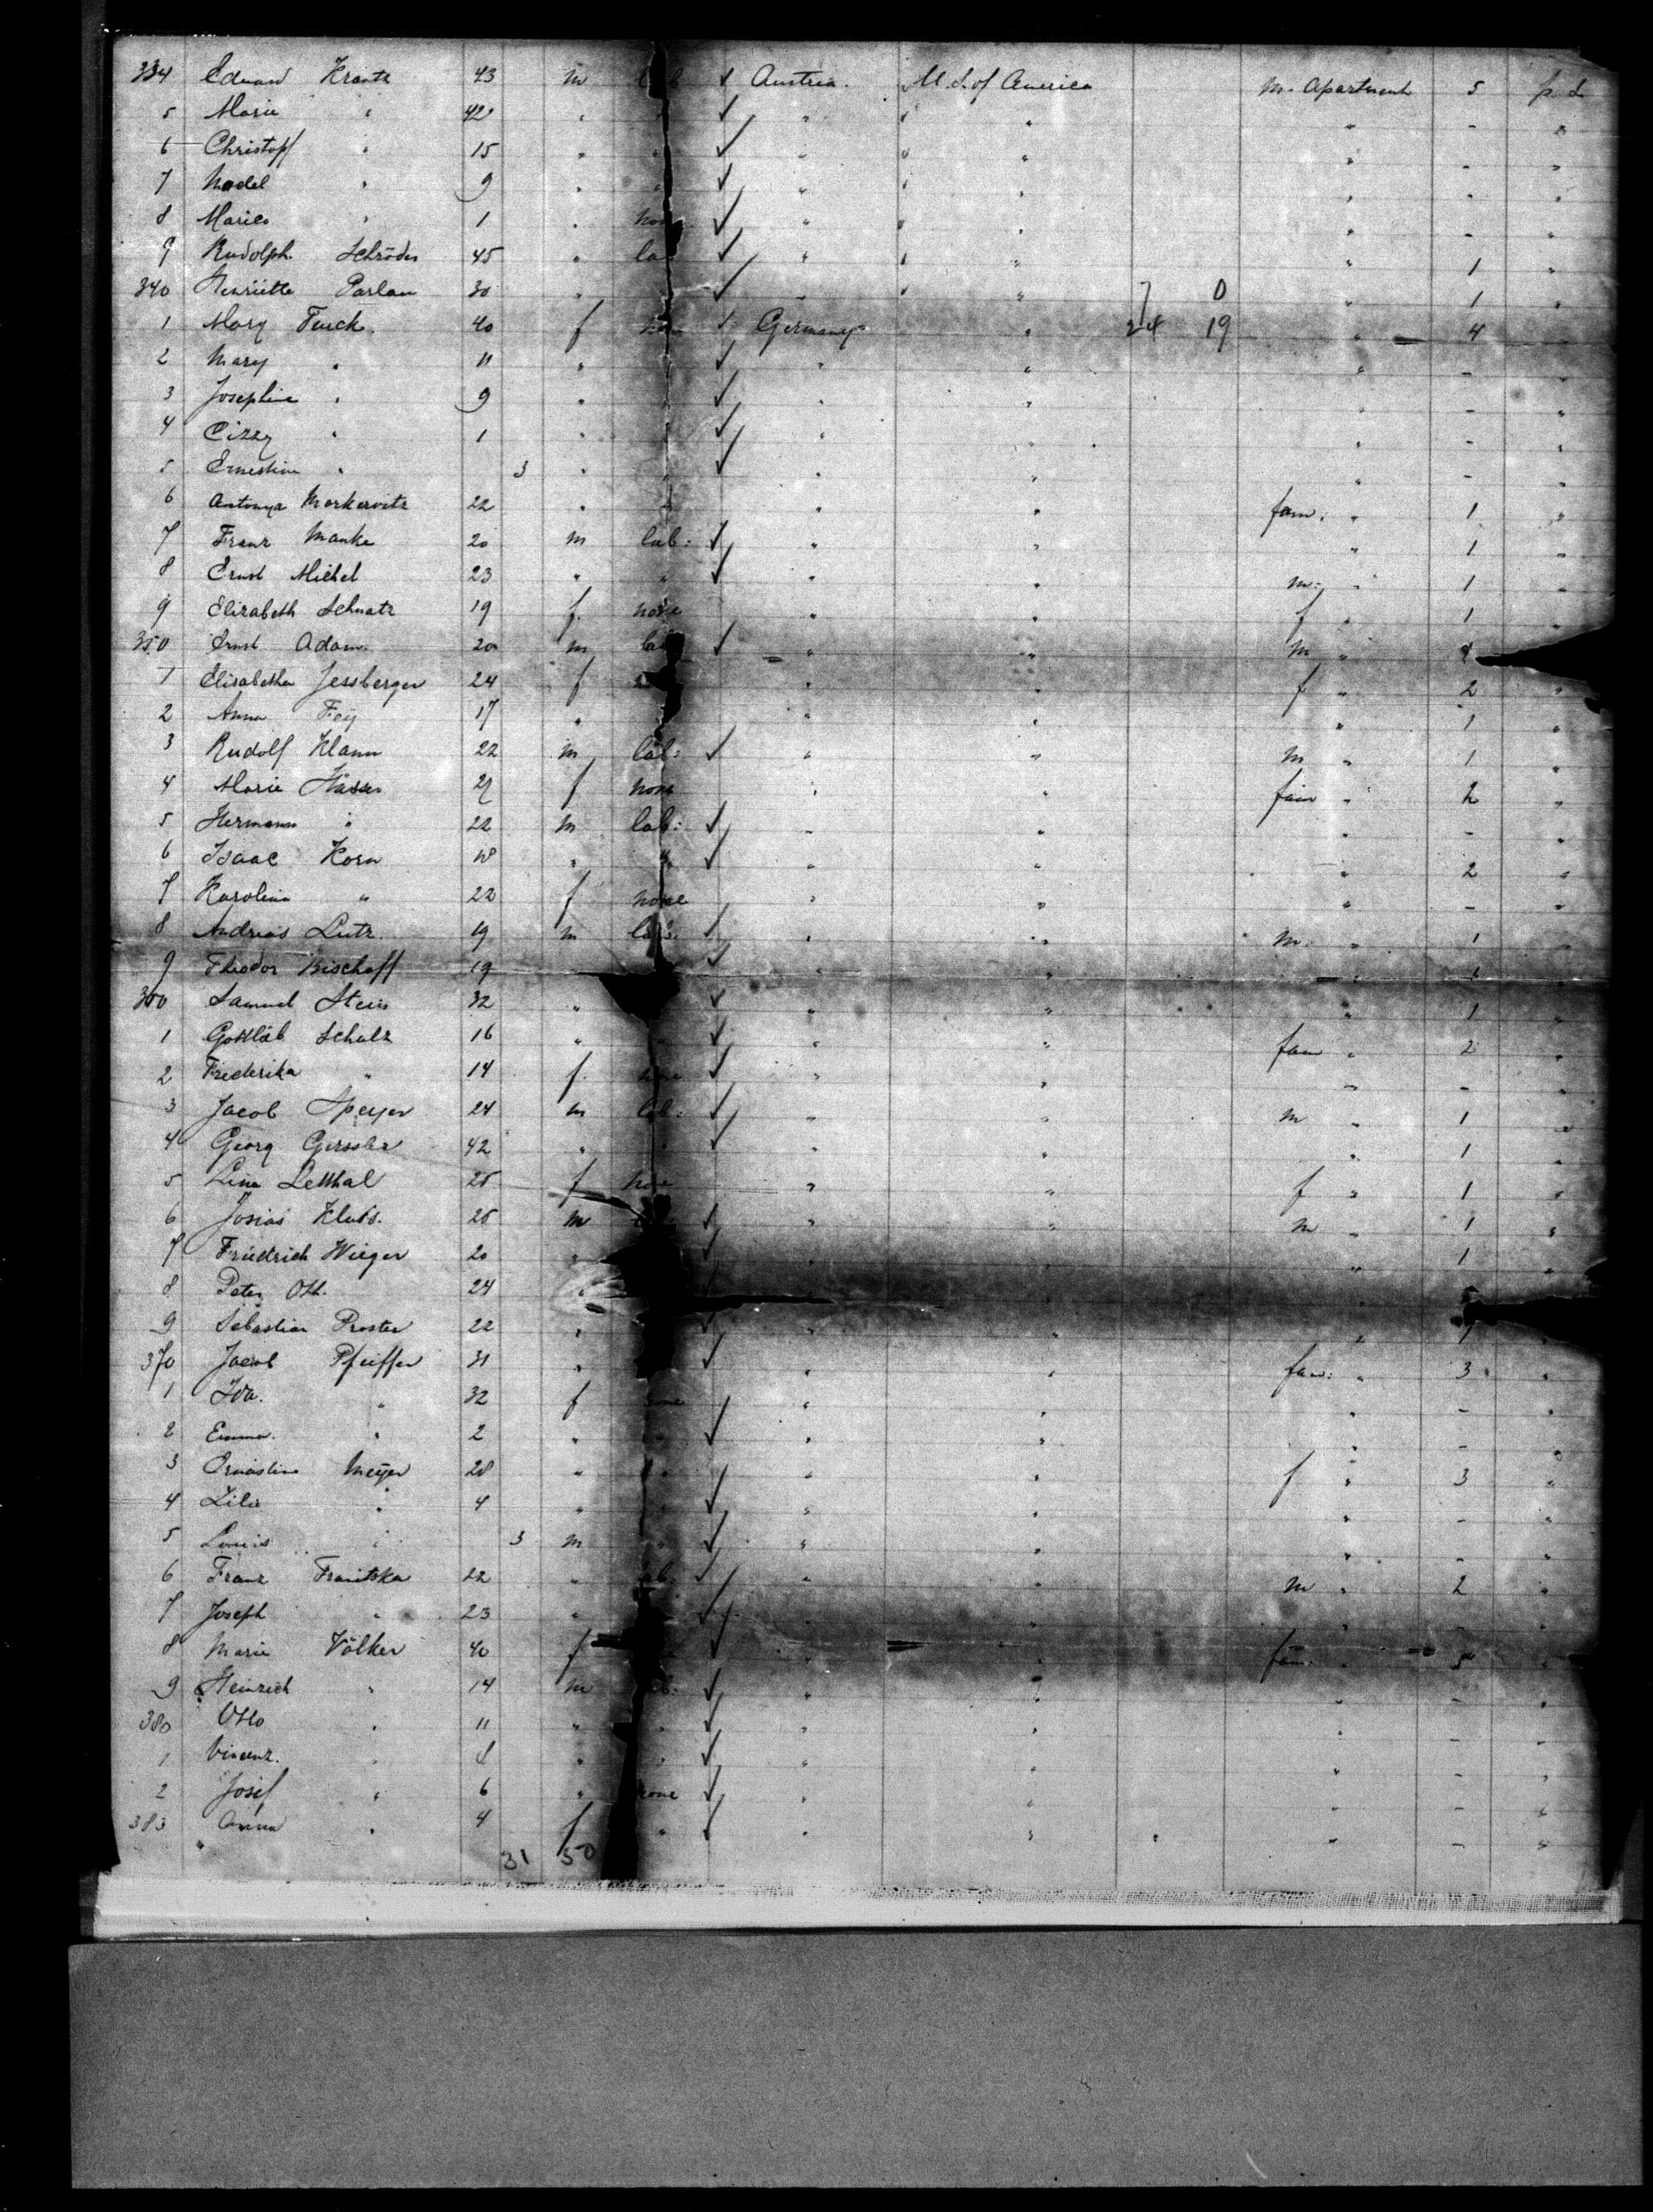 334 Eduard Krantz 43 m lab ✓ Austria. U.S. of America m. Apartment 5 p. d.
5 Marie " 42 " " ✓ " " " - "
6 Christoff " 15 " " ✓ " " " - "
7 " 9 " " ✓ " " " - "
8 " 1 " none ✓ " " " - "
9 Rudolph. Schröder 45 " lab ✓ " " " 1 "
340 Henriette Parlau 30 " " ✓ " " 7 0 " 1 "
1 Mary 40 f none ✓ Germany " 24 19 " 4 "
2 Mary " 11 " " ✓ " " " - "
3 Josephine " 9 " " ✓ " " " - "
4 " 1 " " ✓ " " " - "
5 Ernestine " 3 " " ✓ " " " - "
6 22 " " " " fam. " 1 "
7 Franz Manke 20 m lab: ✓ " " " 1 "
8 Ernst Michel 23 " " ✓ " " m: " 1 "
9 Elizabeth Schnatz 19 f. none " " f " 1 "
350 Ernst Adam. 20 m lab ✓ " " m "
1 Elisabetha Jessberger 24 f " " f " 2 "
2 Anna Fey 17 " " " " 1 "
3 Rudolf Klann 22 m lab: ✓ " " m " 1 "
4 Marie Hässer f none " " fam " 2 "
5 Hermann " 22 m lab: ✓ " " " - "
6 Isaac Korn 18 " " ✓ " " " 2 "
7 Karolina " 22 f none " " " - "
8 Andreas Lutz. 19 m lab. ✓ " " m. " 1 "
9 Theodor Bischoff 19 ✓ " " " 1 "
360 Samuel Stein 32 " ✓ " " " 1 "
1 Gottlieb Schulz 16 " " ✓ " " fam " 2 "
2 Frederika " 14 f. none ✓ " " " - "
3 Jacob Speyer 24 m lab: ✓ " " m " 1 "
4 Georg 42 " " ✓ " " " 1 "
5 Lina 25 f none " " f " 1 "
6 Josias 25 m ✓ " " m " 1 "
7 Friedrich Wieger 20 " ✓ " " " 1 "
8 Peter Ott. 24 " ✓ " " "
9 Sebastian Proster 22 " ✓ " " " 1 "
370 Jacob Pfeiffer 31 " ✓ " " fam: " 3 "
1 Ida. " 32 f none " " " - "
2 Emma. " 2 " ✓ " " " - "
3 Meyer 28 " " " f " 3 "
4 Lilie " 4 " ✓ " " " - "
5 Louis " 3 m " ✓ " " " - "
6 Franz 22 " lab. ✓ " " m " 2 "
7 Joseph " 23 " ✓ " " " - "
8 Marie Völker 40 f ✓ " " fam. " "
9 Heinrich " 14 m lab: ✓ " " " - "
380 Otto " 11 " " ✓ " " " - "
1 Vincenz. " " " ✓ " " " - "
2 Josef " 6 " none ✓ " " " - "
383 Anna " 4 f " ✓ " " " - "
31 50